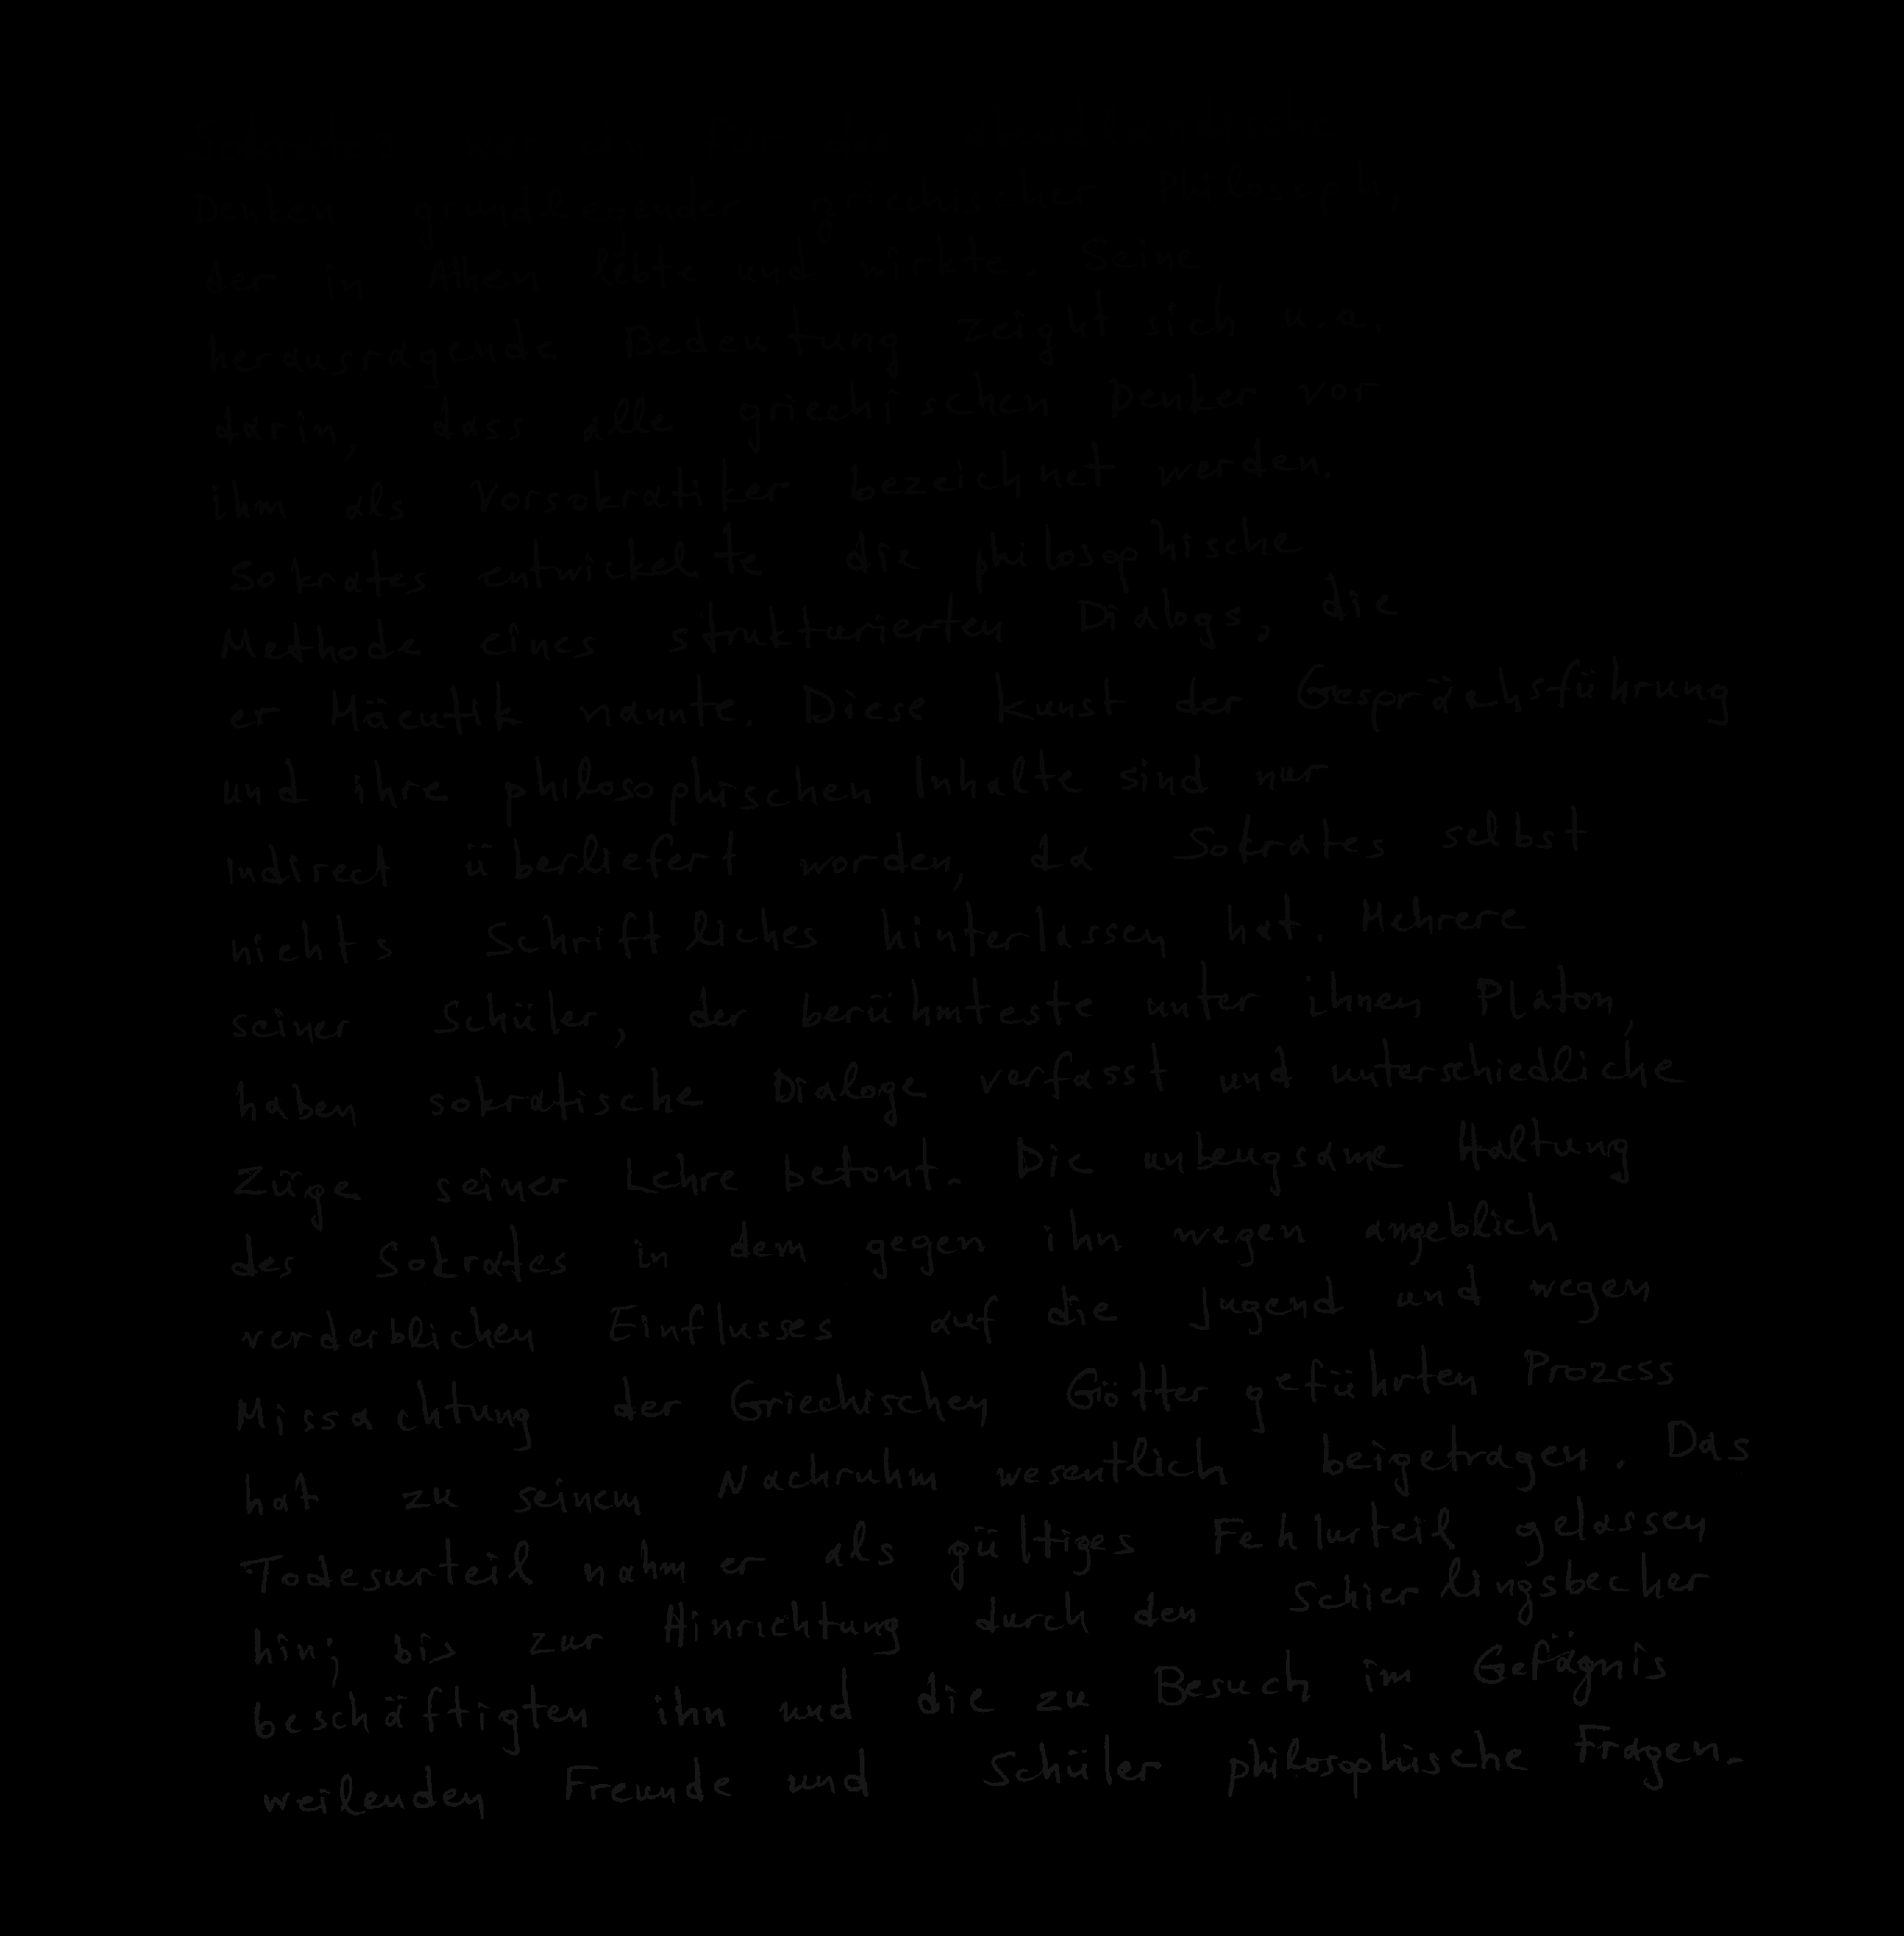 Sokrates war ein für das abendländische
Denken grundlegender griechischer Philosoph,
der in Athen lebte und wirkte. Seine
herausragende Bedeutung zeight sich u.a.
darin, dass alle griechischen Denker vor
ihm als Vorsokratiker bezeichnet werden.
Sokrates entwickelte die philosophische
Methode eines strukturierten Dialogs, die
er Mäeutik nannte. Diese Kunst der Gesprächsführung
und ihre philosophischen Inhalte sind nur
indirect überliefert worden, da Sokrates selbst
nichts Schriftliches hinterlassen hat. Mehrere
seiner Schüler, der berühmteste unter ihnen Platon,
haben sokratische Dialoge verfasst und unterschiedliche
Züge seiner Lehre betont. Die unbeugsame Haltung
des Sokrates in dem gegen ihn wegen angeblich
verderblichen Einflusses auf die Jugend und wegen
Missachtung der Griechischen Götter geführten Prozess
hat zu seinem Nachruhm wesentlich beigetragen. Das
Todesurteil nahm er als gültiges Fehlurteil gelassen
hin; bis zur Hinrichtung durch den Schierlingsbecher
beschäftigten ihn und die zu Besuch im Gefägnis
weilenden Freunde und Schüler philosophische Fragen.